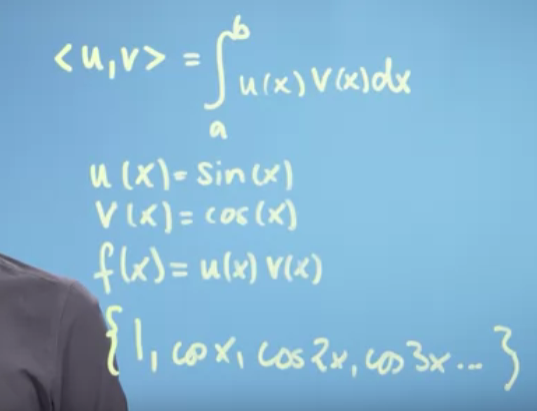 <u,v> = ∫ₐᵇ u(x) v(x)dx
u(x) = sin(x)
v(x) = cos(x)
f(x) = u(x) v(x)
{1, cos x, cos 2x, cos 3x ... }